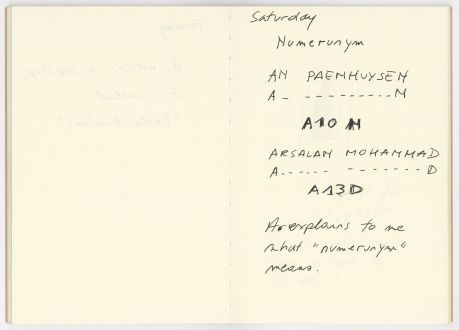 Saturday
Numerunym
AN PAENHUYSEN
A_ ---------N
A10N
ARSALAN MOHAMMAD
A------ -------D
A13D
explains to me
what "numerunym"
means.